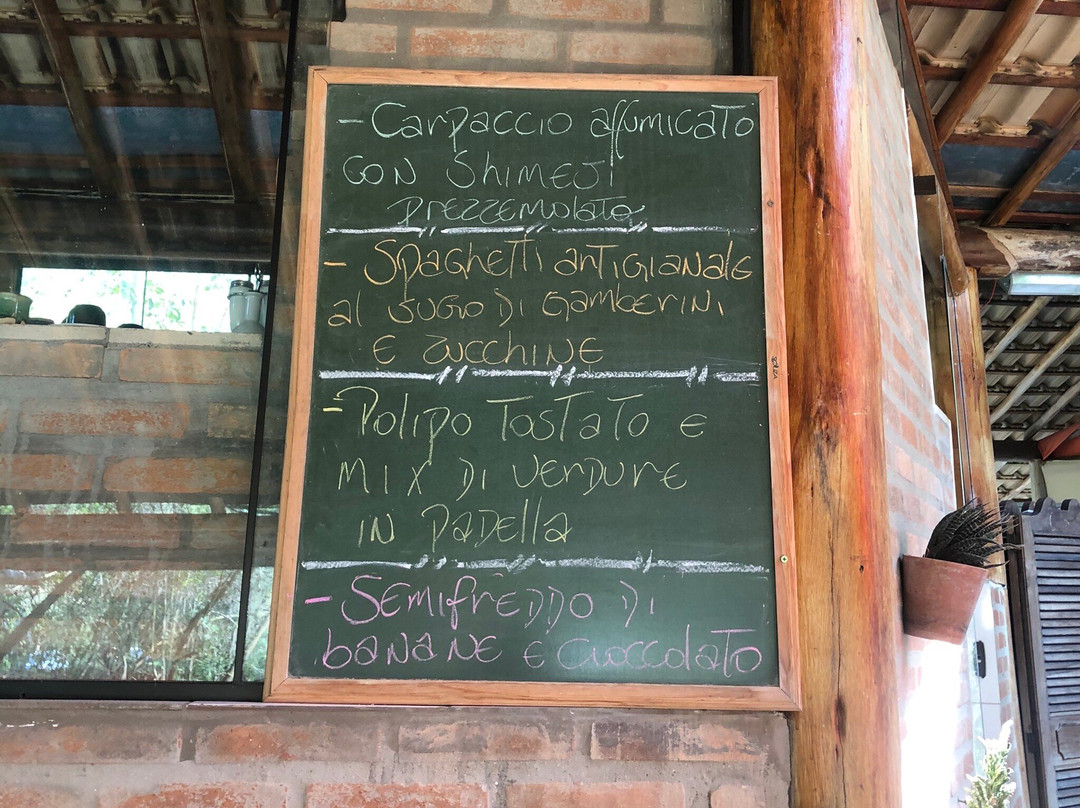 - Carpaccio affumicato
con Shimeji
Prezzemolato
- Spaghetti artigianale
al sugo di gamberini
e zucchine
- Polipo Tostato e
mix di verdure
in padella
- Semifreddo di
banane e cioccolato